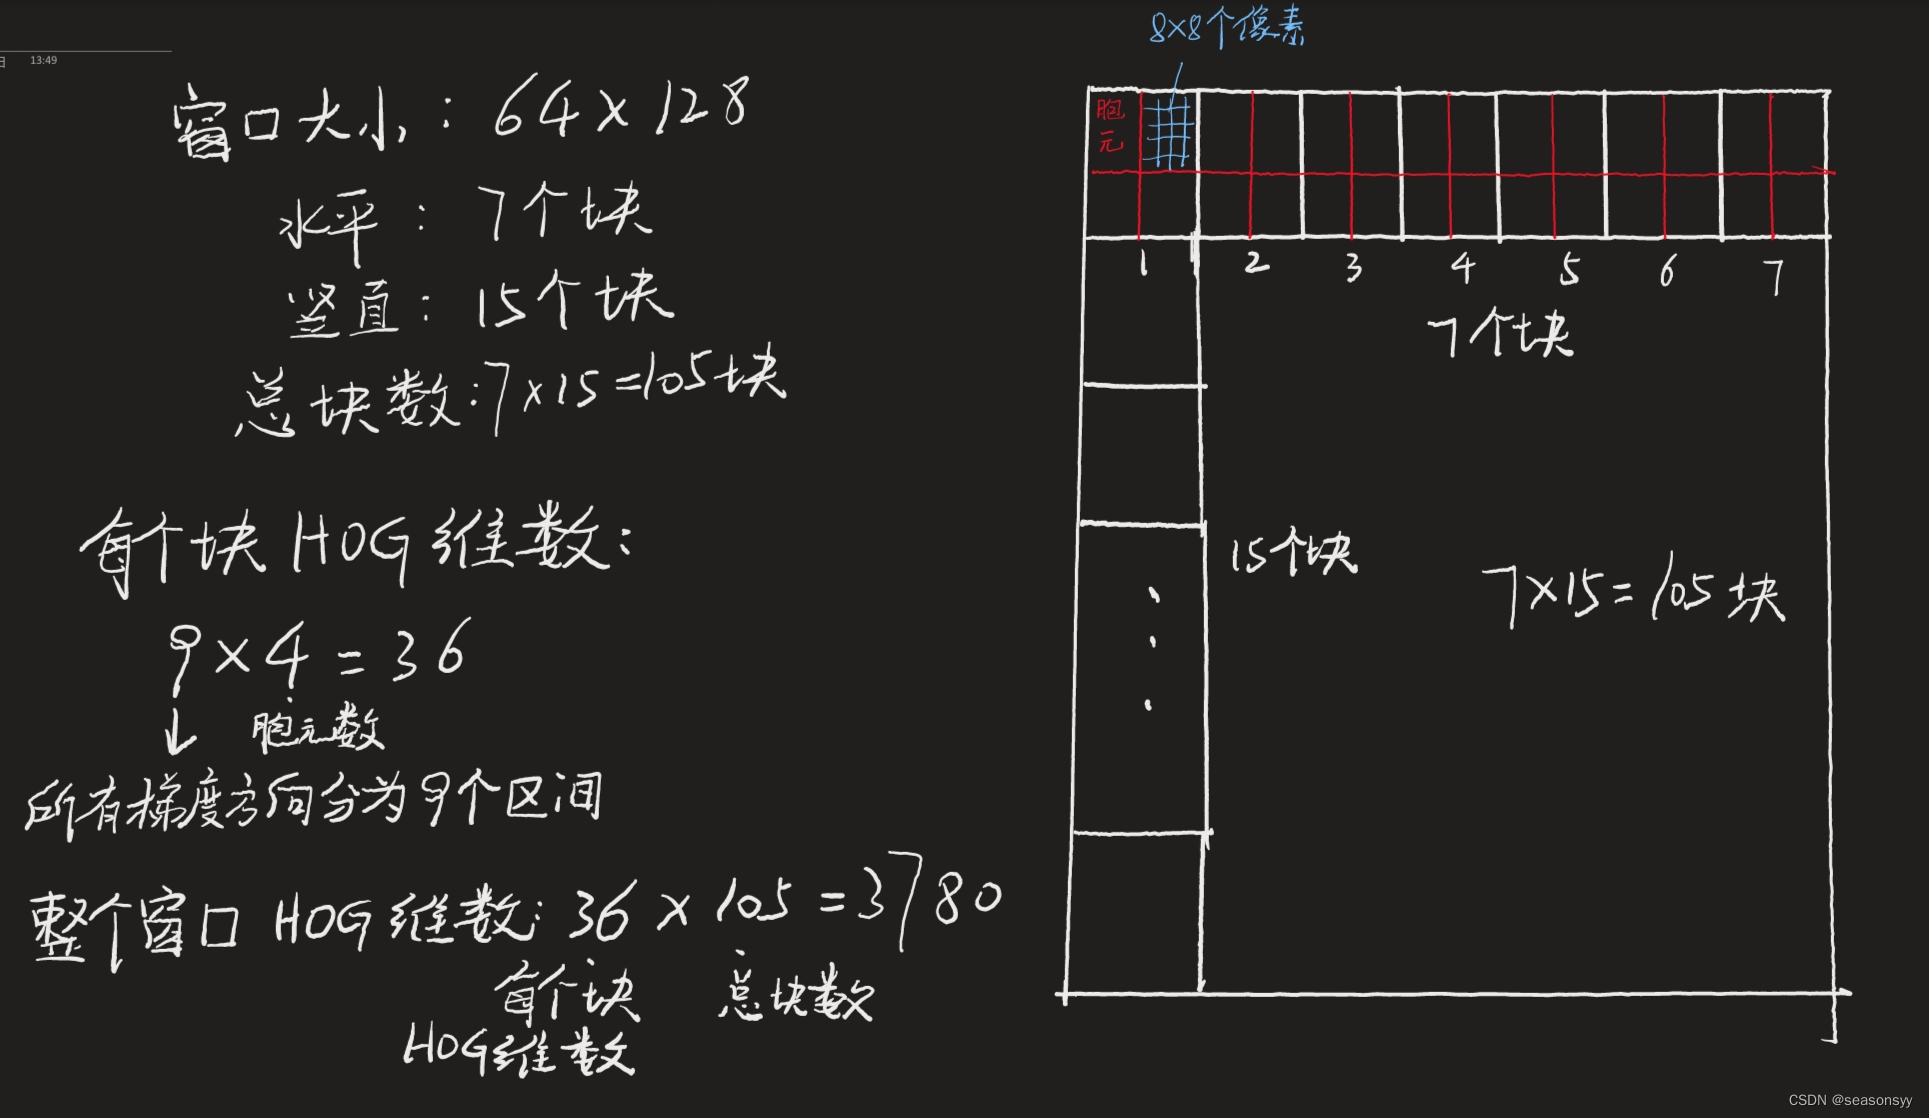 日 13:49
窗口大小: 64×128
水平: 7个块
竖直: 15个块
总块数:7×15=105块
每个块 HOG 维数:
9×4=36
↓ 胞元数
所有梯度方向分为9个区间
整个窗口 HOG 维数: 36×105=3780
每个块 总块数
HOG维数
8×8个像素
胞
元
1 2 3 4 5 6 7
7个块
15个块
7×15=105块
CSDN @seasonsyy